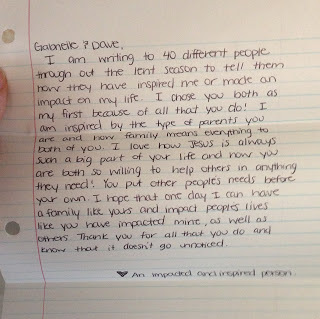 Gabrielle & Dave,
I am writing to 40 different people
through out the lent season to tell them
how they have inspired me or made an
impact on my life. I chose you both as
my first because of all that you do! I
am inspired by the type of parents you
are and how family means everything to
both of you. I love how Jesus is always
such a big part of your life and how you
are both so willing to help others in anything
they need! You put other people's needs before
your own. I hope that one day I can have
a family like yours and impact peoples lives
like you have impacted mine, as well as
others. Thank you for all that you do and
know that it doesn't go unnoticed.
♥ An impacted and inspired person.